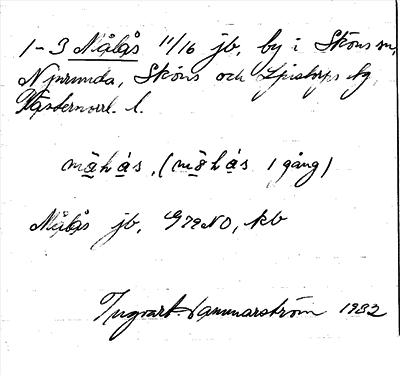 1-3 Målås 11/16 jb, by i Sköns sn,
Njurunda, Sköns och Ljustorps tg,
Västernorrl. l.
måhås, (mö̀hås 1 gång)
Målås jb, G722NO, kb
Ingvart Hammarström 1932